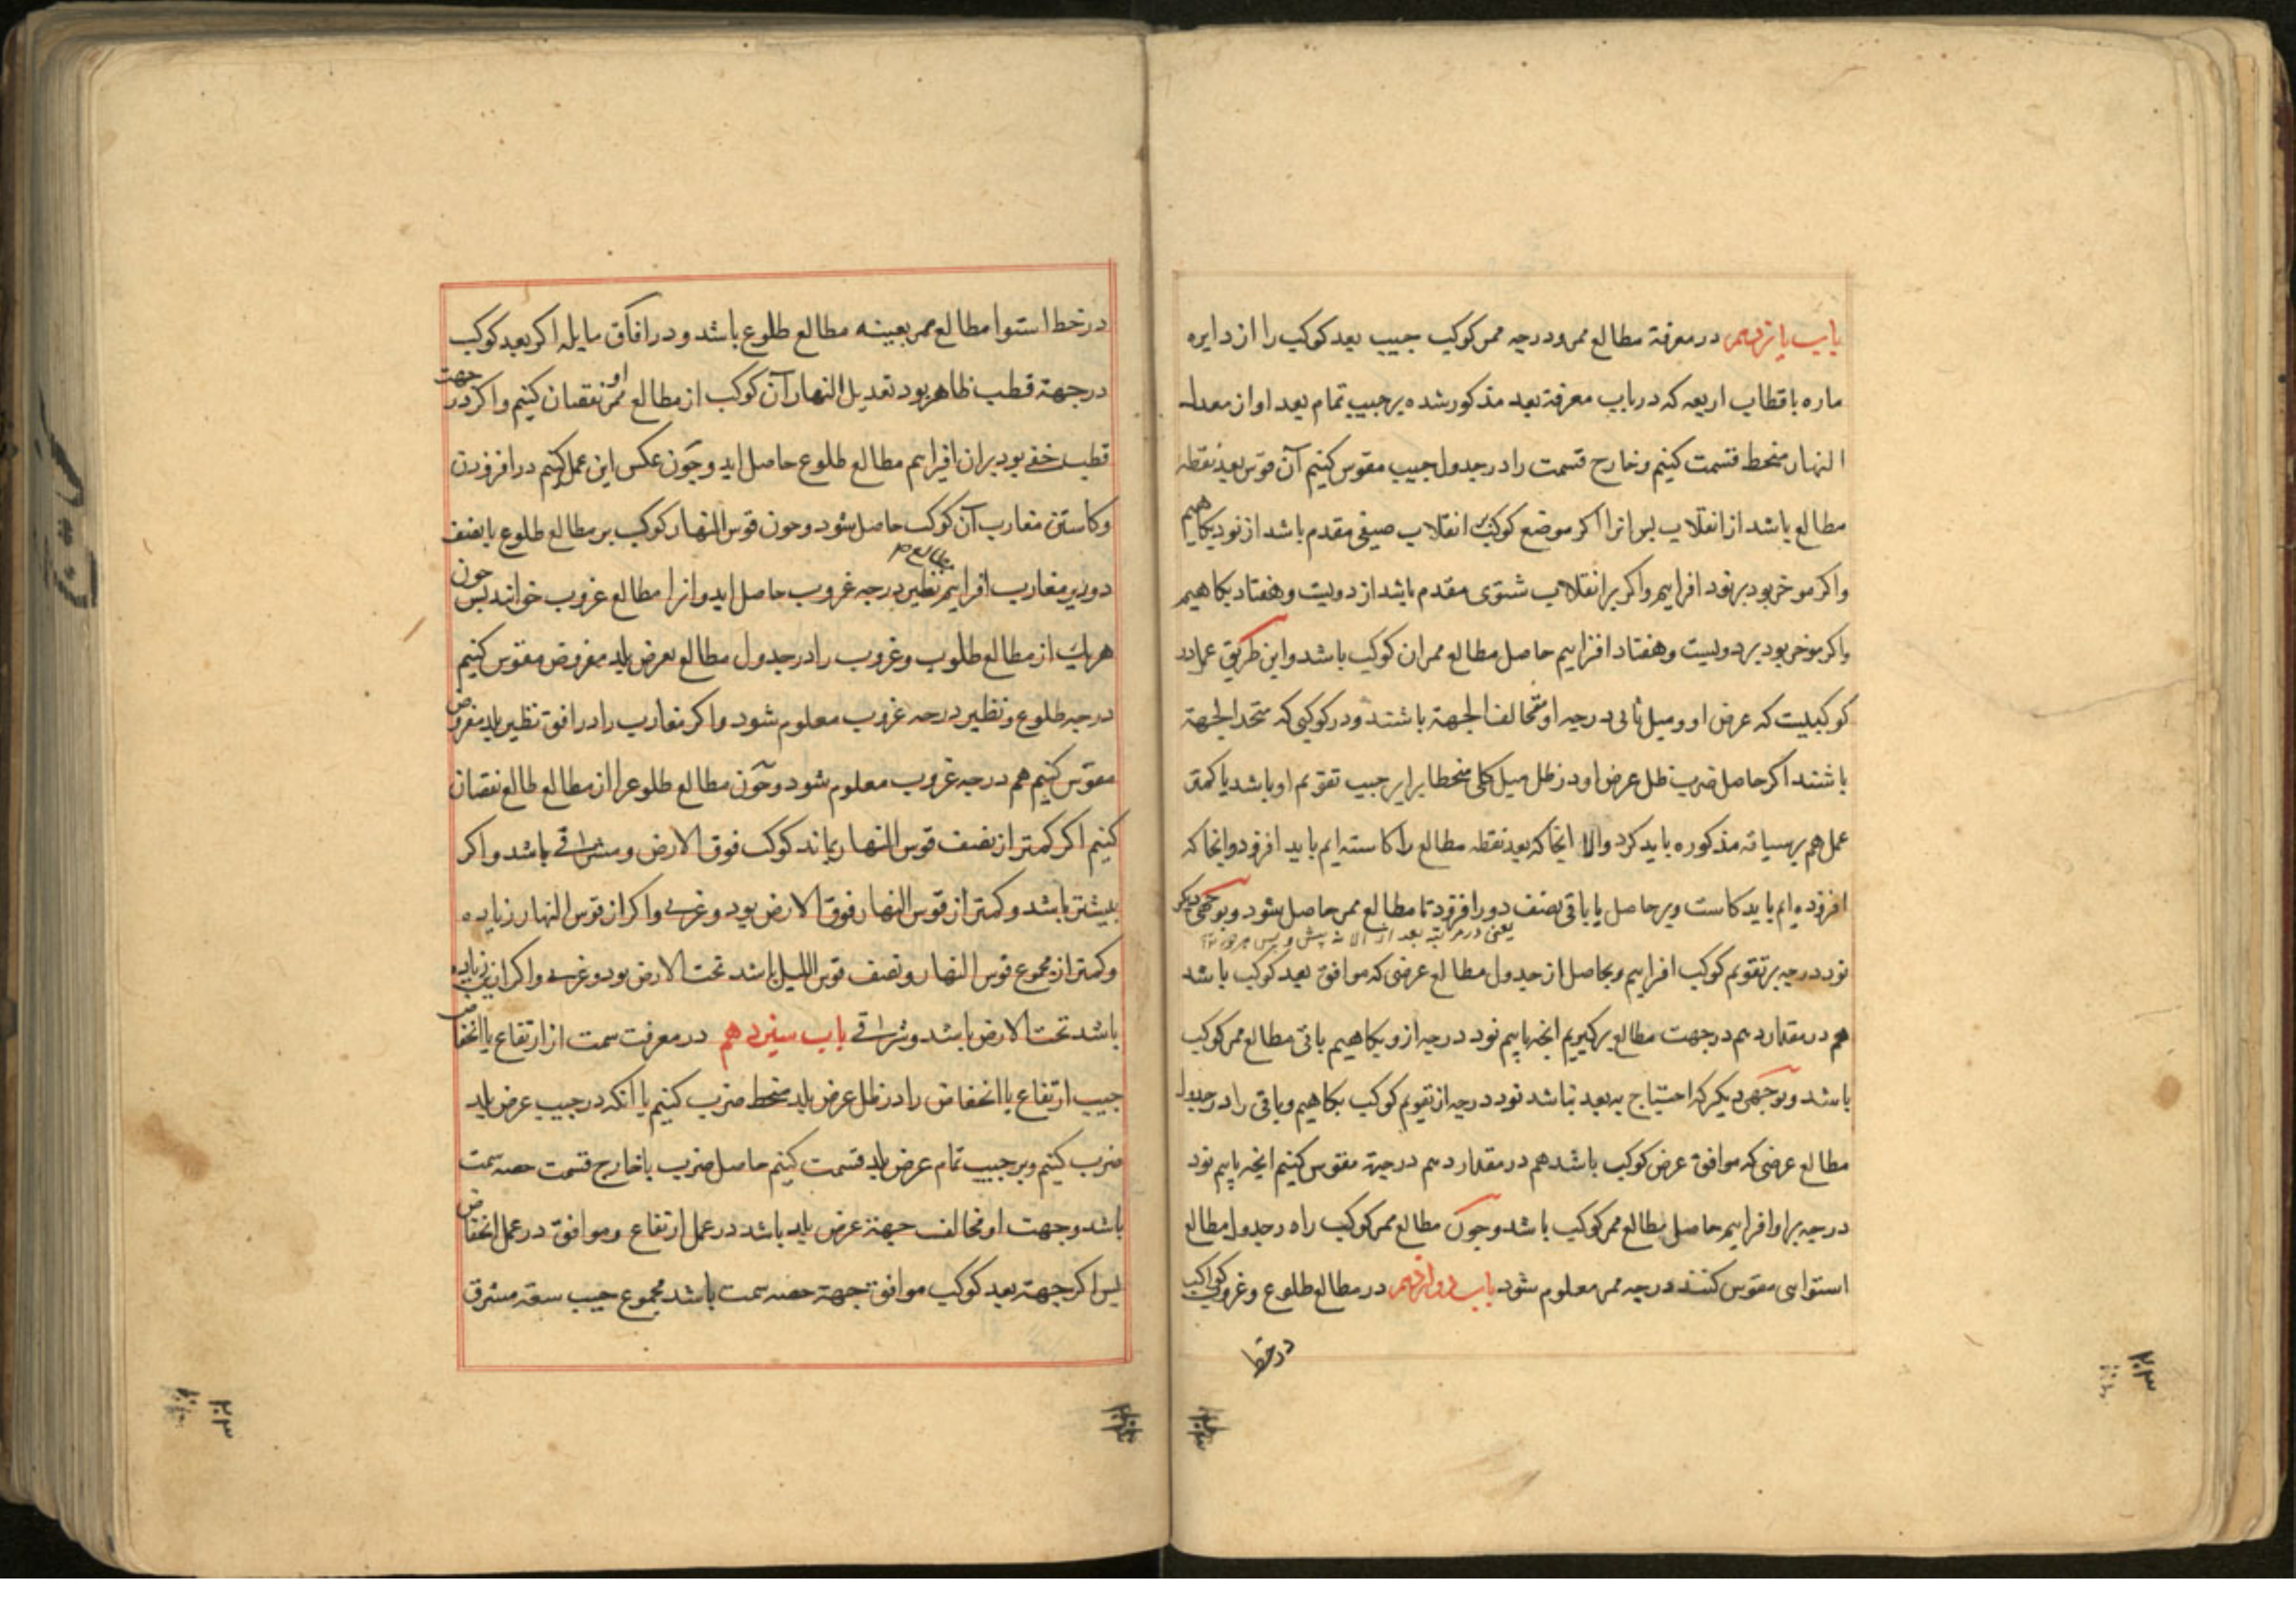 باب یازدهم در معرفة مطالع ممر و درجه ممر کوکب جیب بعد کوکب را از دایره
ماره باقطاب اربعه که در باب معرفة بعد مذکور شده بر جیب تمام بعد او از معدل
النهار منحط قسمت کنیم و خارج قسمت را در جدول جیب مقوس کنیم آن قوس بعد نقطه
مطالع باشد از انقلاب پس انرا اکر موضع کوکب بر انقلاب صیفی مقدم باشد از نود بکاهیم
و اکر موخر بود بر نود افزاییم و اکر بر انقلاب شتوی مقدم باشد از دویست و هفتاد بکاهیم
و اکر موخر بود بر دویست و هفتاد افزاییم حاصل مطالع ممر ان کوکب باشد و این طریق عمل در
کوکبیست که عرض او و میل ثانی درجه او مخالف الجهة باشند و در کوکبی که متحد الجهة
باشند اکر حاصل ضرب ظل عرض او در ظل میل کلی منحطا برابر جیب تقویم او باشد یا کمتر
عمل هم بر سیاقه مذکوره باید کرد والا انجا که بعد نقطه مطالع را کاسته ایم باید افزود و انجا که
افزوده ایم باید کاست و بر حاصل یا باقی نصف دور افزود تا مطالع ممر حاصل شود و بوجهی دیکر
یعنی در مرتبه بعد از
نود درجه بر تقویم کوکب افزاییم و بحاصل از جدول مطالع عرضی که موافق بعد کوکب باشد
هم در مقدار هم در جهت مطالع برکیریم انچه یابیم نود درجه ازو بکاهیم باقی مطالع ممر کوکب
باشد و بوجهی دیکر که احتیاج به بعد نباشد نود درجه از تقویم کوکب بکاهیم و باقی را در جدول
مطالع عرضی که موافق عرض کوکب باشد هم در مقدار هم در جهة مقوس کنیم انچه یابیم نود
درجه بر او افزاییم حاصل مطالع ممر کوکب باشد و چون مطالع ممر کوکب را در جدول مطالع
استوایی مقوس کنند درجه ممر معلوم شود باب دوازدهم در مطالع طلوع و غروب کواکب
در خط
۲۰۳
در خط استوا مطالع ممر بعینه مطالع طلوع باشد و در افاق مایله اکر بعد کوکب
در جهة قطب ظاهر بود تعدیل النهار آن کوکب از مطالع ممر او نقصان کنیم و اکر در جهت
قطب خفی بود بران افزاییم مطالع طلوع حاصل اید و چون عکس این عمل کنیم در افزودن
و کاستن مغارب آن کوکب حاصل شود و چون قوس النهار کوکب بر مطالع طلوع یا نصف
دور بر مغارب افزاییم مطالع نظیر درجه غروب حاصل اید و انرا مطالع غروب خوانند پس چون
هر یک از مطالع طلوب و غروب را در جدول مطالع بعرض بلد مفروض مقوس کنیم
درجه طلوع و نظیر درجه غروب معلوم شود و اکر مغارب را در افق نظیر بلد مفروض
مقوس کنیم هم درجه غروب معلوم شود و چون مطالع طلوع را از مطالع طالع نقصان
کنیم اکر کمتر از نصف قوس النهار بماند کوکب فوق الارض و شرقی باشد و اکر
بیشتر باشد و کمتر از قوس النهار فوق الارض بود و غربی و اکر از قوس النهار زیاده
و کمتر از مجموع قوس النهار و نصف قوس اللیل باشد تحت الارض بود و غربی و اکر ازین زیاده
باشد تحت الارض باشد و شرقی باب سیزدهم در معرفت سمت از ارتفاع یا انخفاض
جیب ارتفاع یا انخفاض را در ظل عرض بلد منحط ضرب کنیم یا انکه در جیب عرض بلد
ضرب کنیم و بر جیب تمام عرض بلد قسمت کنیم حاصل ضرب یا خارج قسمت حصه سمت
باشد و جهت او مخالف جهة عرض بلد باشد در عمل ارتفاع و موافق در عمل انخفاض
پس اکر جهة بعد کوکب موافق جهة حصه سمت باشد مجموع جیب سعه مشرق
۲۰۳